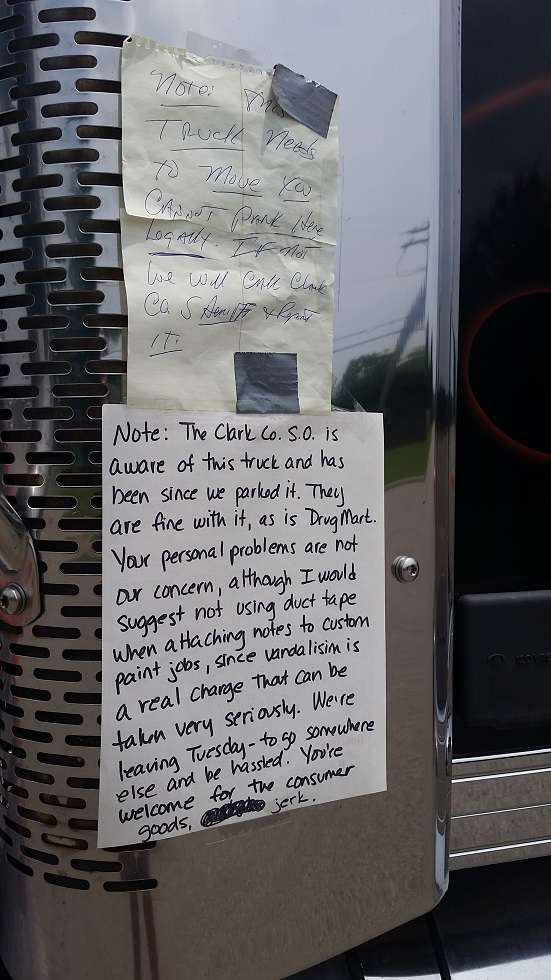 Note: This
Truck Needs
To Move You
Cannot Park Here
Legally. If Not
We will Call Clark
Co. Sheriff & Report
IT!
Note: The Clark Co. S.O. is
aware of this truck and has
been since we parked it. They
are fine with it, as is DrugMart.
Your personal problems are not
our concern, although I would
suggest not using duct tape
when attaching notes to custom
paint jobs, since vandalisim is
a real charge that can be
taken very seriously. We're
leaving Tuesday - to go somewhere
else and be hassled. You're
welcome for the consumer
goods, jerk.